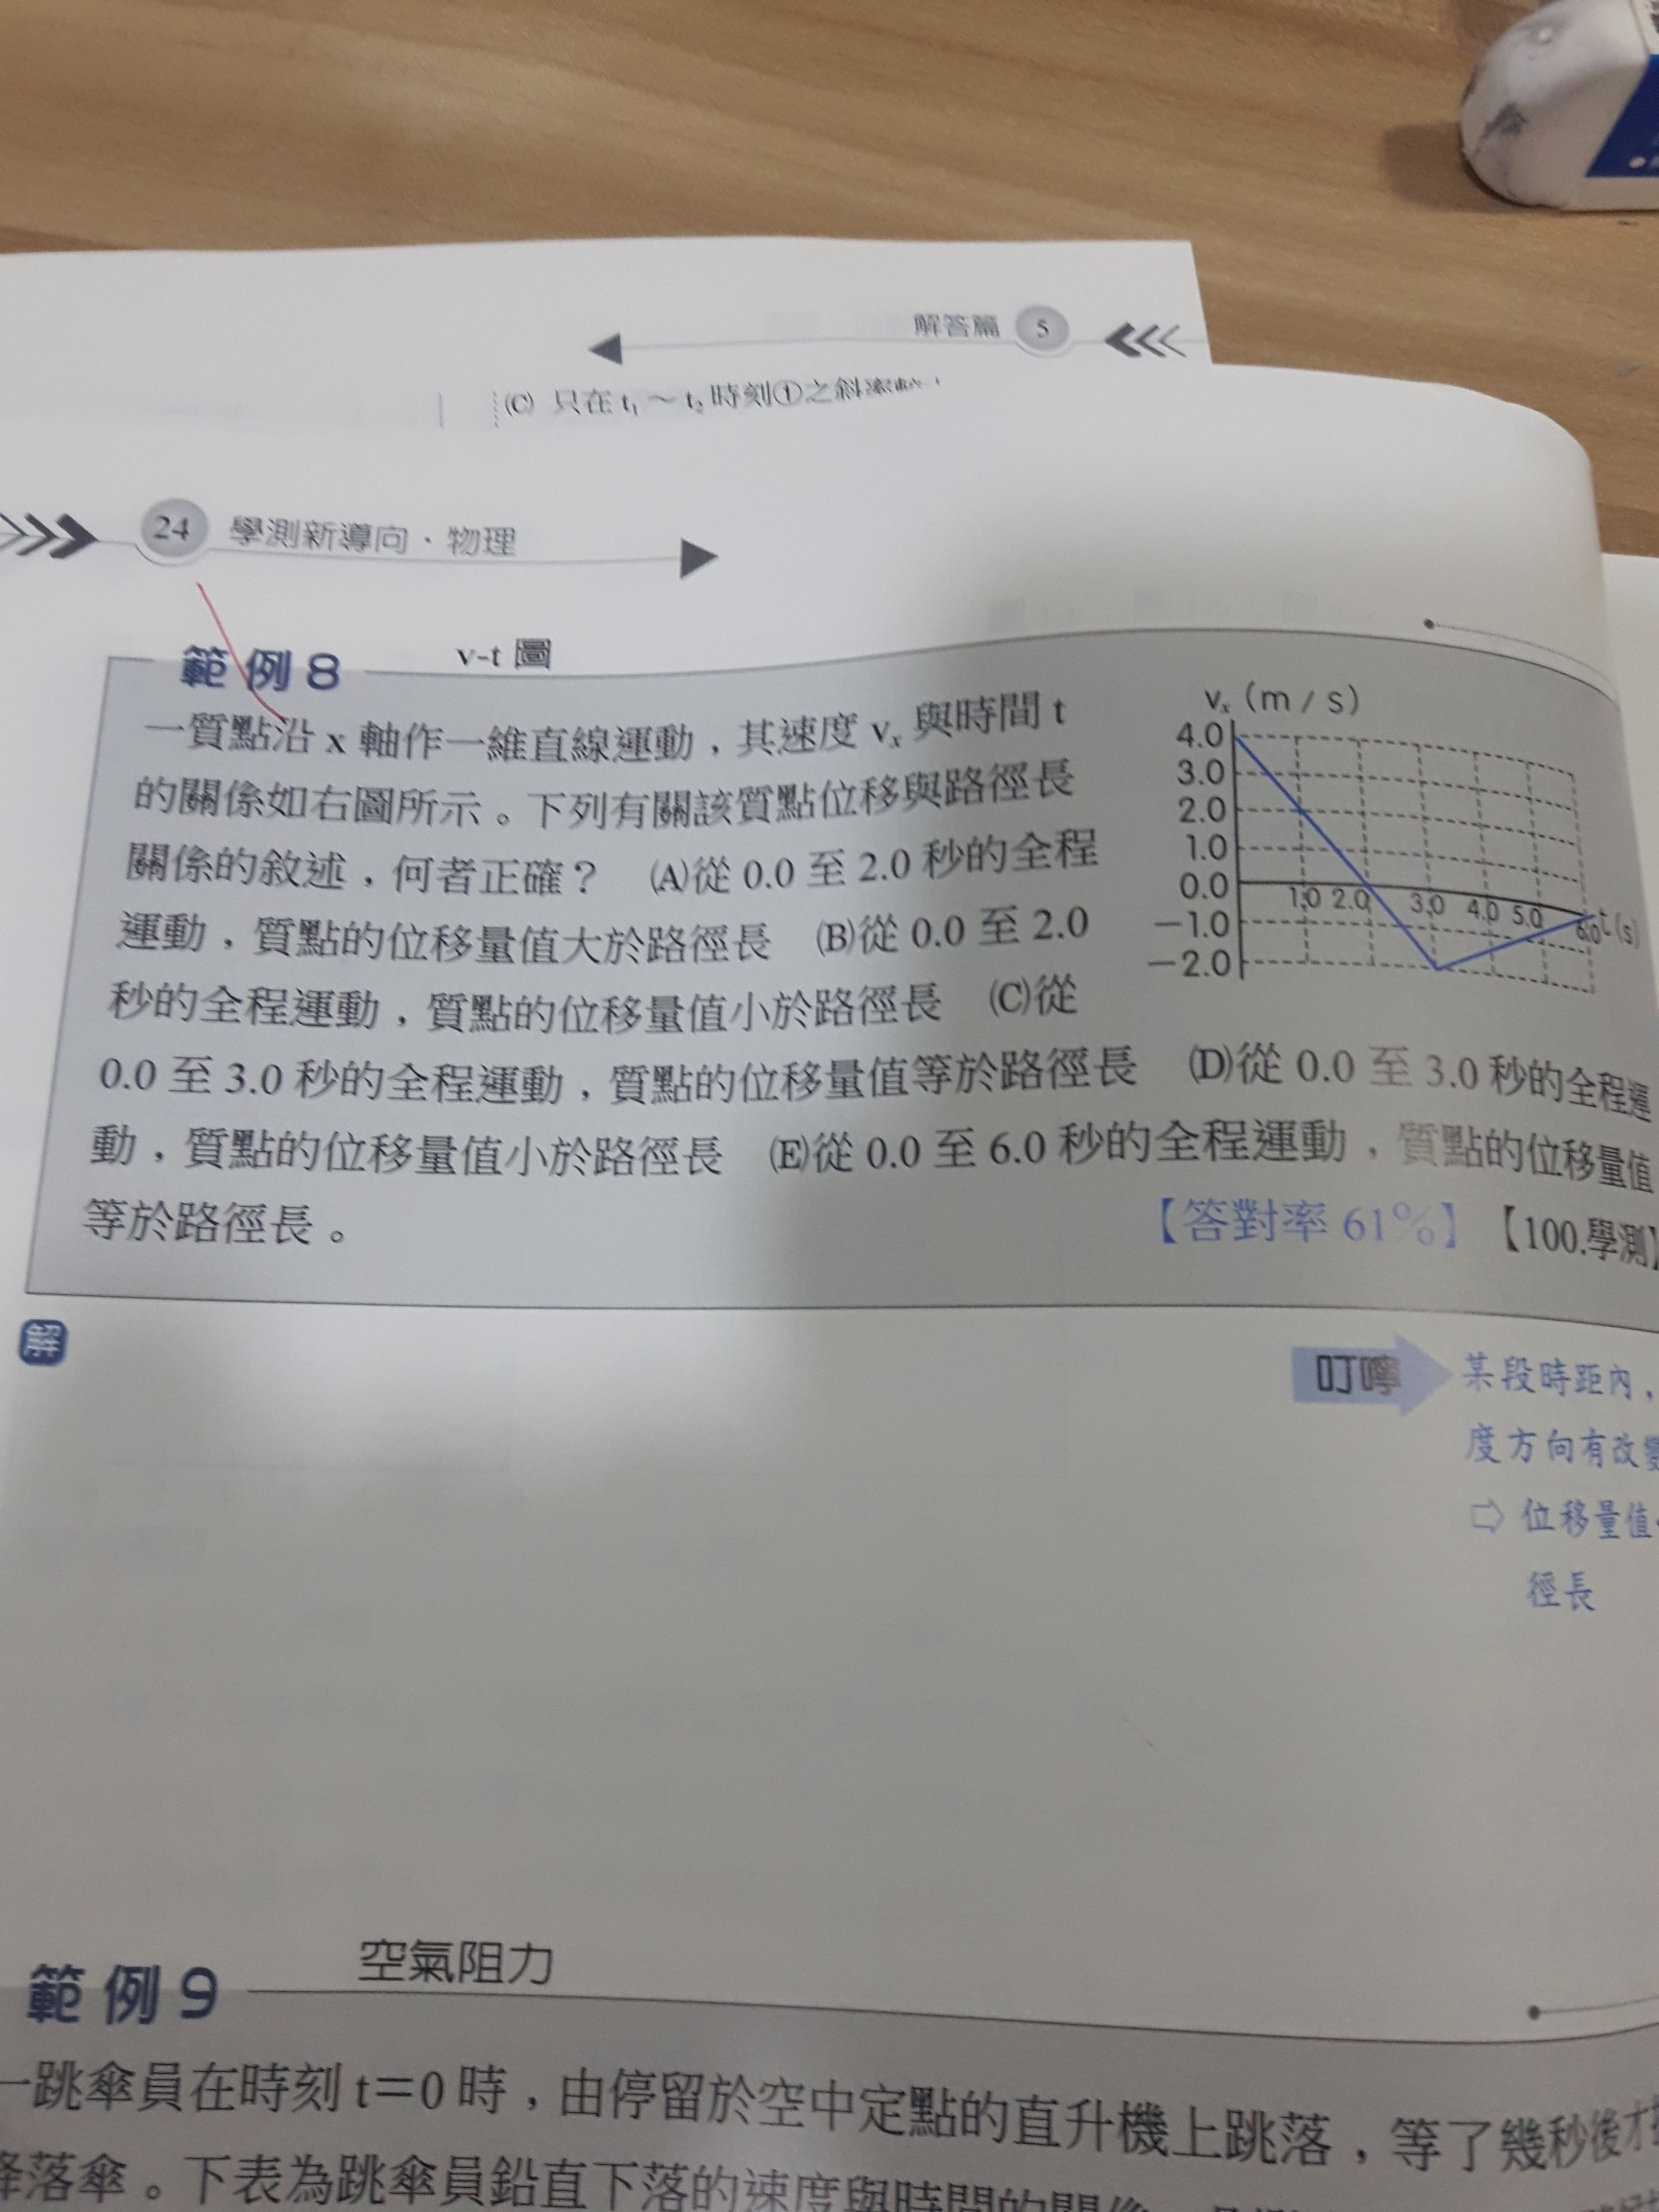 解答篇 5
(C) 只在 t₁～t₂ 時刻①之斜率較
24 學測新導向・物理
範例8 v-t 圖
一質點沿 x 軸作一維直線運動，其速度 vₓ 與時間 t
的關係如右圖所示。下列有關該質點位移與路徑長
關係的敘述，何者正確？ (A)從 0.0 至 2.0 秒的全程
運動，質點的位移量值大於路徑長 (B)從 0.0 至 2.0
秒的全程運動，質點的位移量值小於路徑長 (C)從
0.0 至 3.0 秒的全程運動，質點的位移量值等於路徑長 (D)從 0.0 至 3.0 秒的全程運
動，質點的位移量值小於路徑長 (E)從 0.0 至 6.0 秒的全程運動，質點的位移量值
等於路徑長。
【答對率 61%】【100.學測】
vₓ (m / s)
4.0
3.0
2.0
1.0
0.0
－1.0
－2.0
1.0 2.0 3.0 4.0 5.0 6.0 t(s)
解
叮嚀
某段時距內，
度方向有改變
⇨ 位移量值
徑長
範例9 空氣阻力
一跳傘員在時刻 t＝0 時，由停留於空中定點的直升機上跳落，等了幾秒後才
降落傘。下表為跳傘員鉛直下落的速度與時間的關係